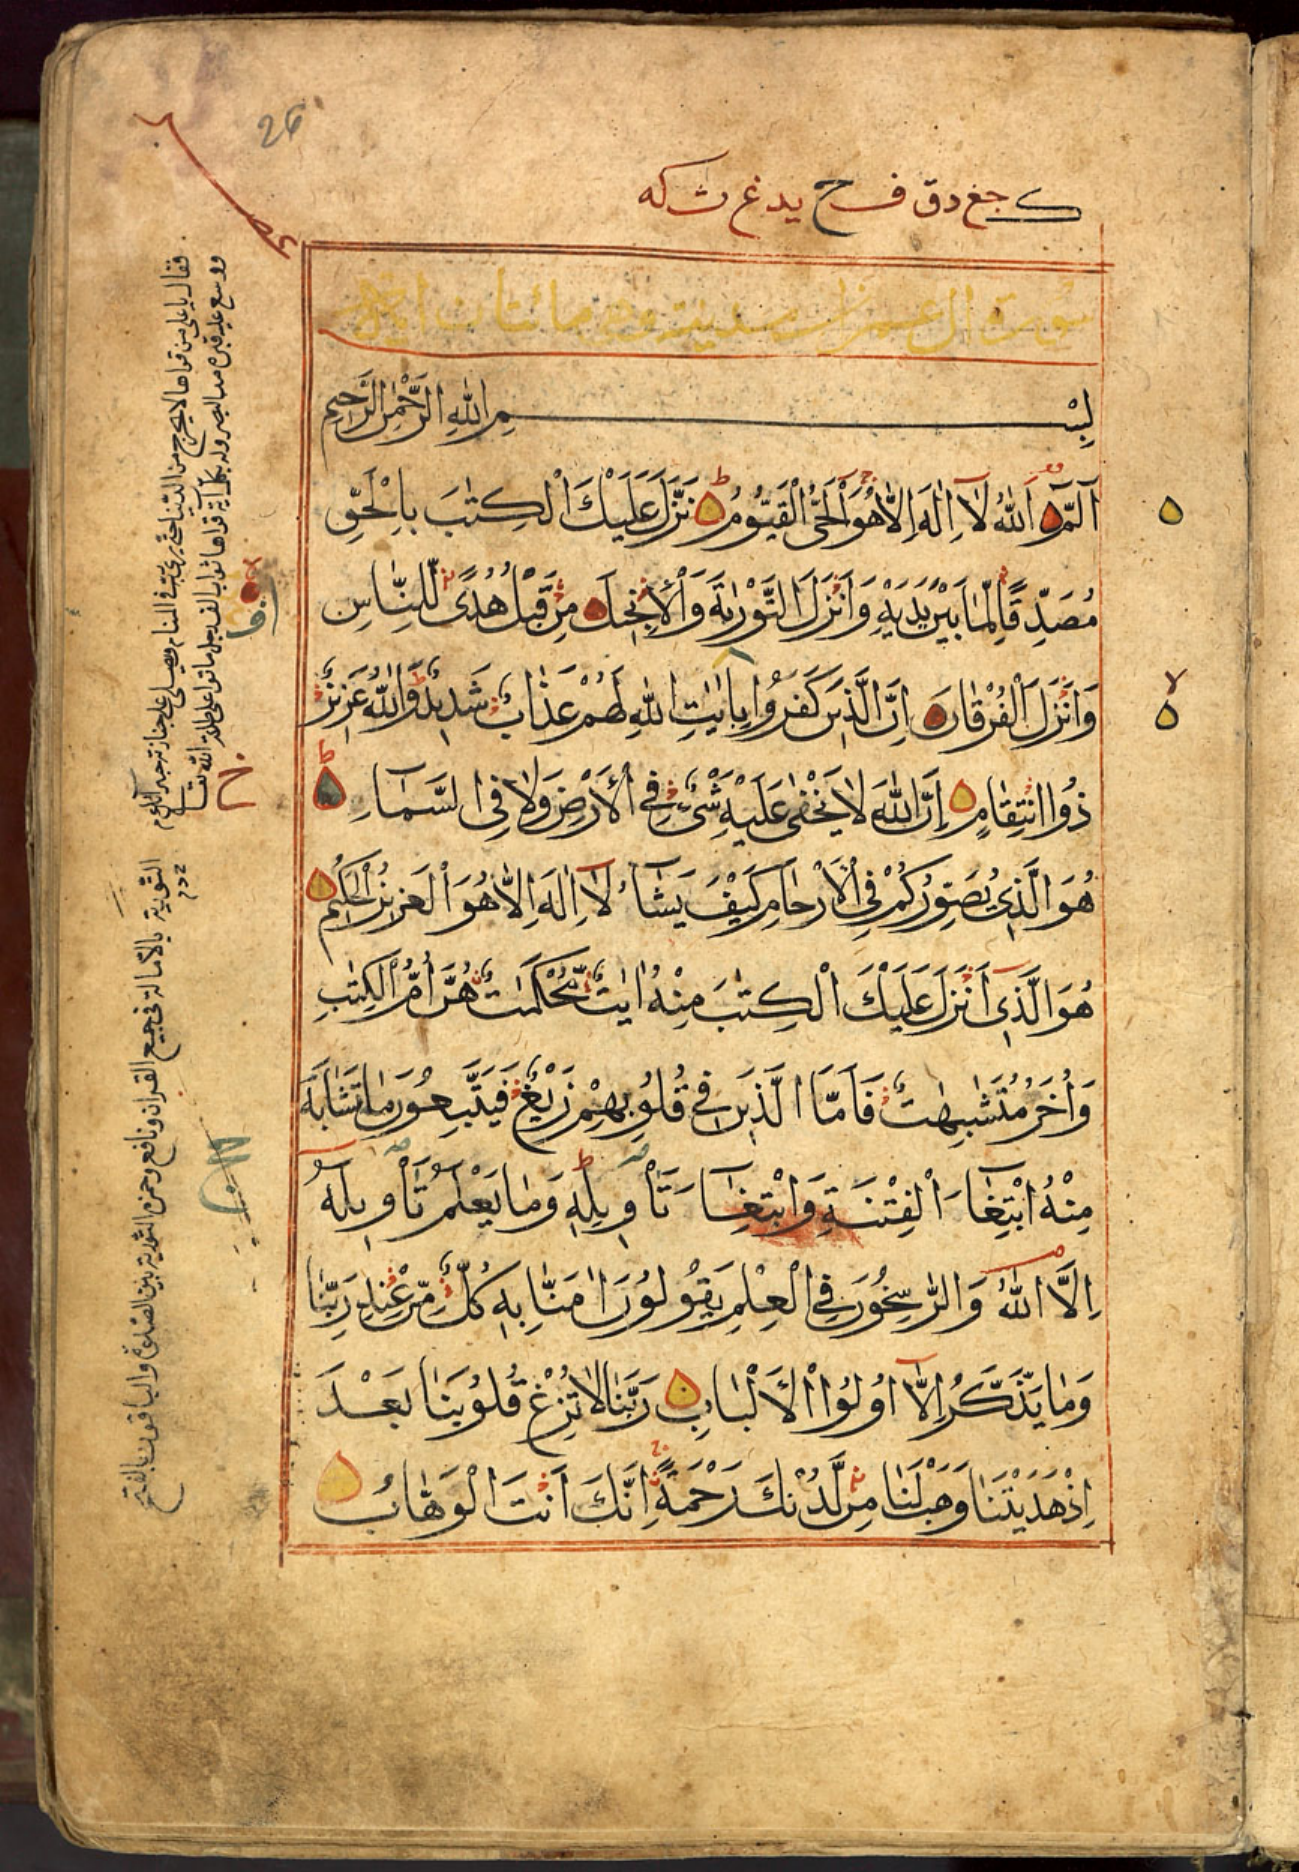 26
سورة ال عمران مدنية وهي مائتان اية
بِسْمِ اللهِ الرَّحْمٰنِ الرَّحِيمِ
آلٓمّٓ اَللهُ لَآ اِلٰهَ اِلَّا هُوَ الْحَيُّ الْقَيُّومُ نَزَّلَ عَلَيْكَ الْكِتٰبَ بِالْحَقِّ
مُصَدِّقًا لِّمَا بَيْنَ يَدَيْهِ وَاَنْزَلَ التَّوْرٰىةَ وَالْاِنْجِيلَ مِنْ قَبْلُ هُدًى لِّلنَّاسِ
وَاَنْزَلَ الْفُرْقَانَ اِنَّ الَّذِينَ كَفَرُوا بِاٰيٰتِ اللهِ لَهُمْ عَذَابٌ شَدِيدٌ وَاللهُ عَزِيزٌ
ذُوا انْتِقَامٍ اِنَّ اللهَ لَا يَخْفٰى عَلَيْهِ شَيْءٌ فِي الْاَرْضِ وَلَا فِي السَّمَآءِ
هُوَ الَّذِي يُصَوِّرُكُمْ فِي الْاَرْحَامِ كَيْفَ يَشَآءُ لَآ اِلٰهَ اِلَّا هُوَ الْعَزِيزُ الْحَكِيمُ
هُوَ الَّذِيٓ اَنْزَلَ عَلَيْكَ الْكِتٰبَ مِنْهُ اٰيٰتٌ مُّحْكَمٰتٌ هُنَّ اُمُّ الْكِتٰبِ
وَاُخَرُ مُتَشٰبِهٰتٌ فَاَمَّا الَّذِينَ فِي قُلُوبِهِمْ زَيْغٌ فَيَتَّبِعُونَ مَا تَشَابَهَ
مِنْهُ ابْتِغَآءَ الْفِتْنَةِ وَابْتِغَآءَ تَأْوِيلِهِ وَمَا يَعْلَمُ تَأْوِيلَهُٓ
اِلَّا اللهُ وَالرّٰسِخُونَ فِي الْعِلْمِ يَقُولُونَ اٰمَنَّا بِهِ كُلٌّ مِّنْ عِنْدِ رَبِّنَا
وَمَا يَذَّكَّرُ اِلَّآ اُولُوا الْاَلْبَابِ رَبَّنَا لَا تُزِغْ قُلُوبَنَا بَعْدَ
اِذْ هَدَيْتَنَا وَهَبْ لَنَا مِنْ لَّدُنْكَ رَحْمَةً اِنَّكَ اَنْتَ الْوَهَّابُ
التورية بالامالة في جميع القران ونافع وحمزة التورية بين اللفظين والباقون بالفتح